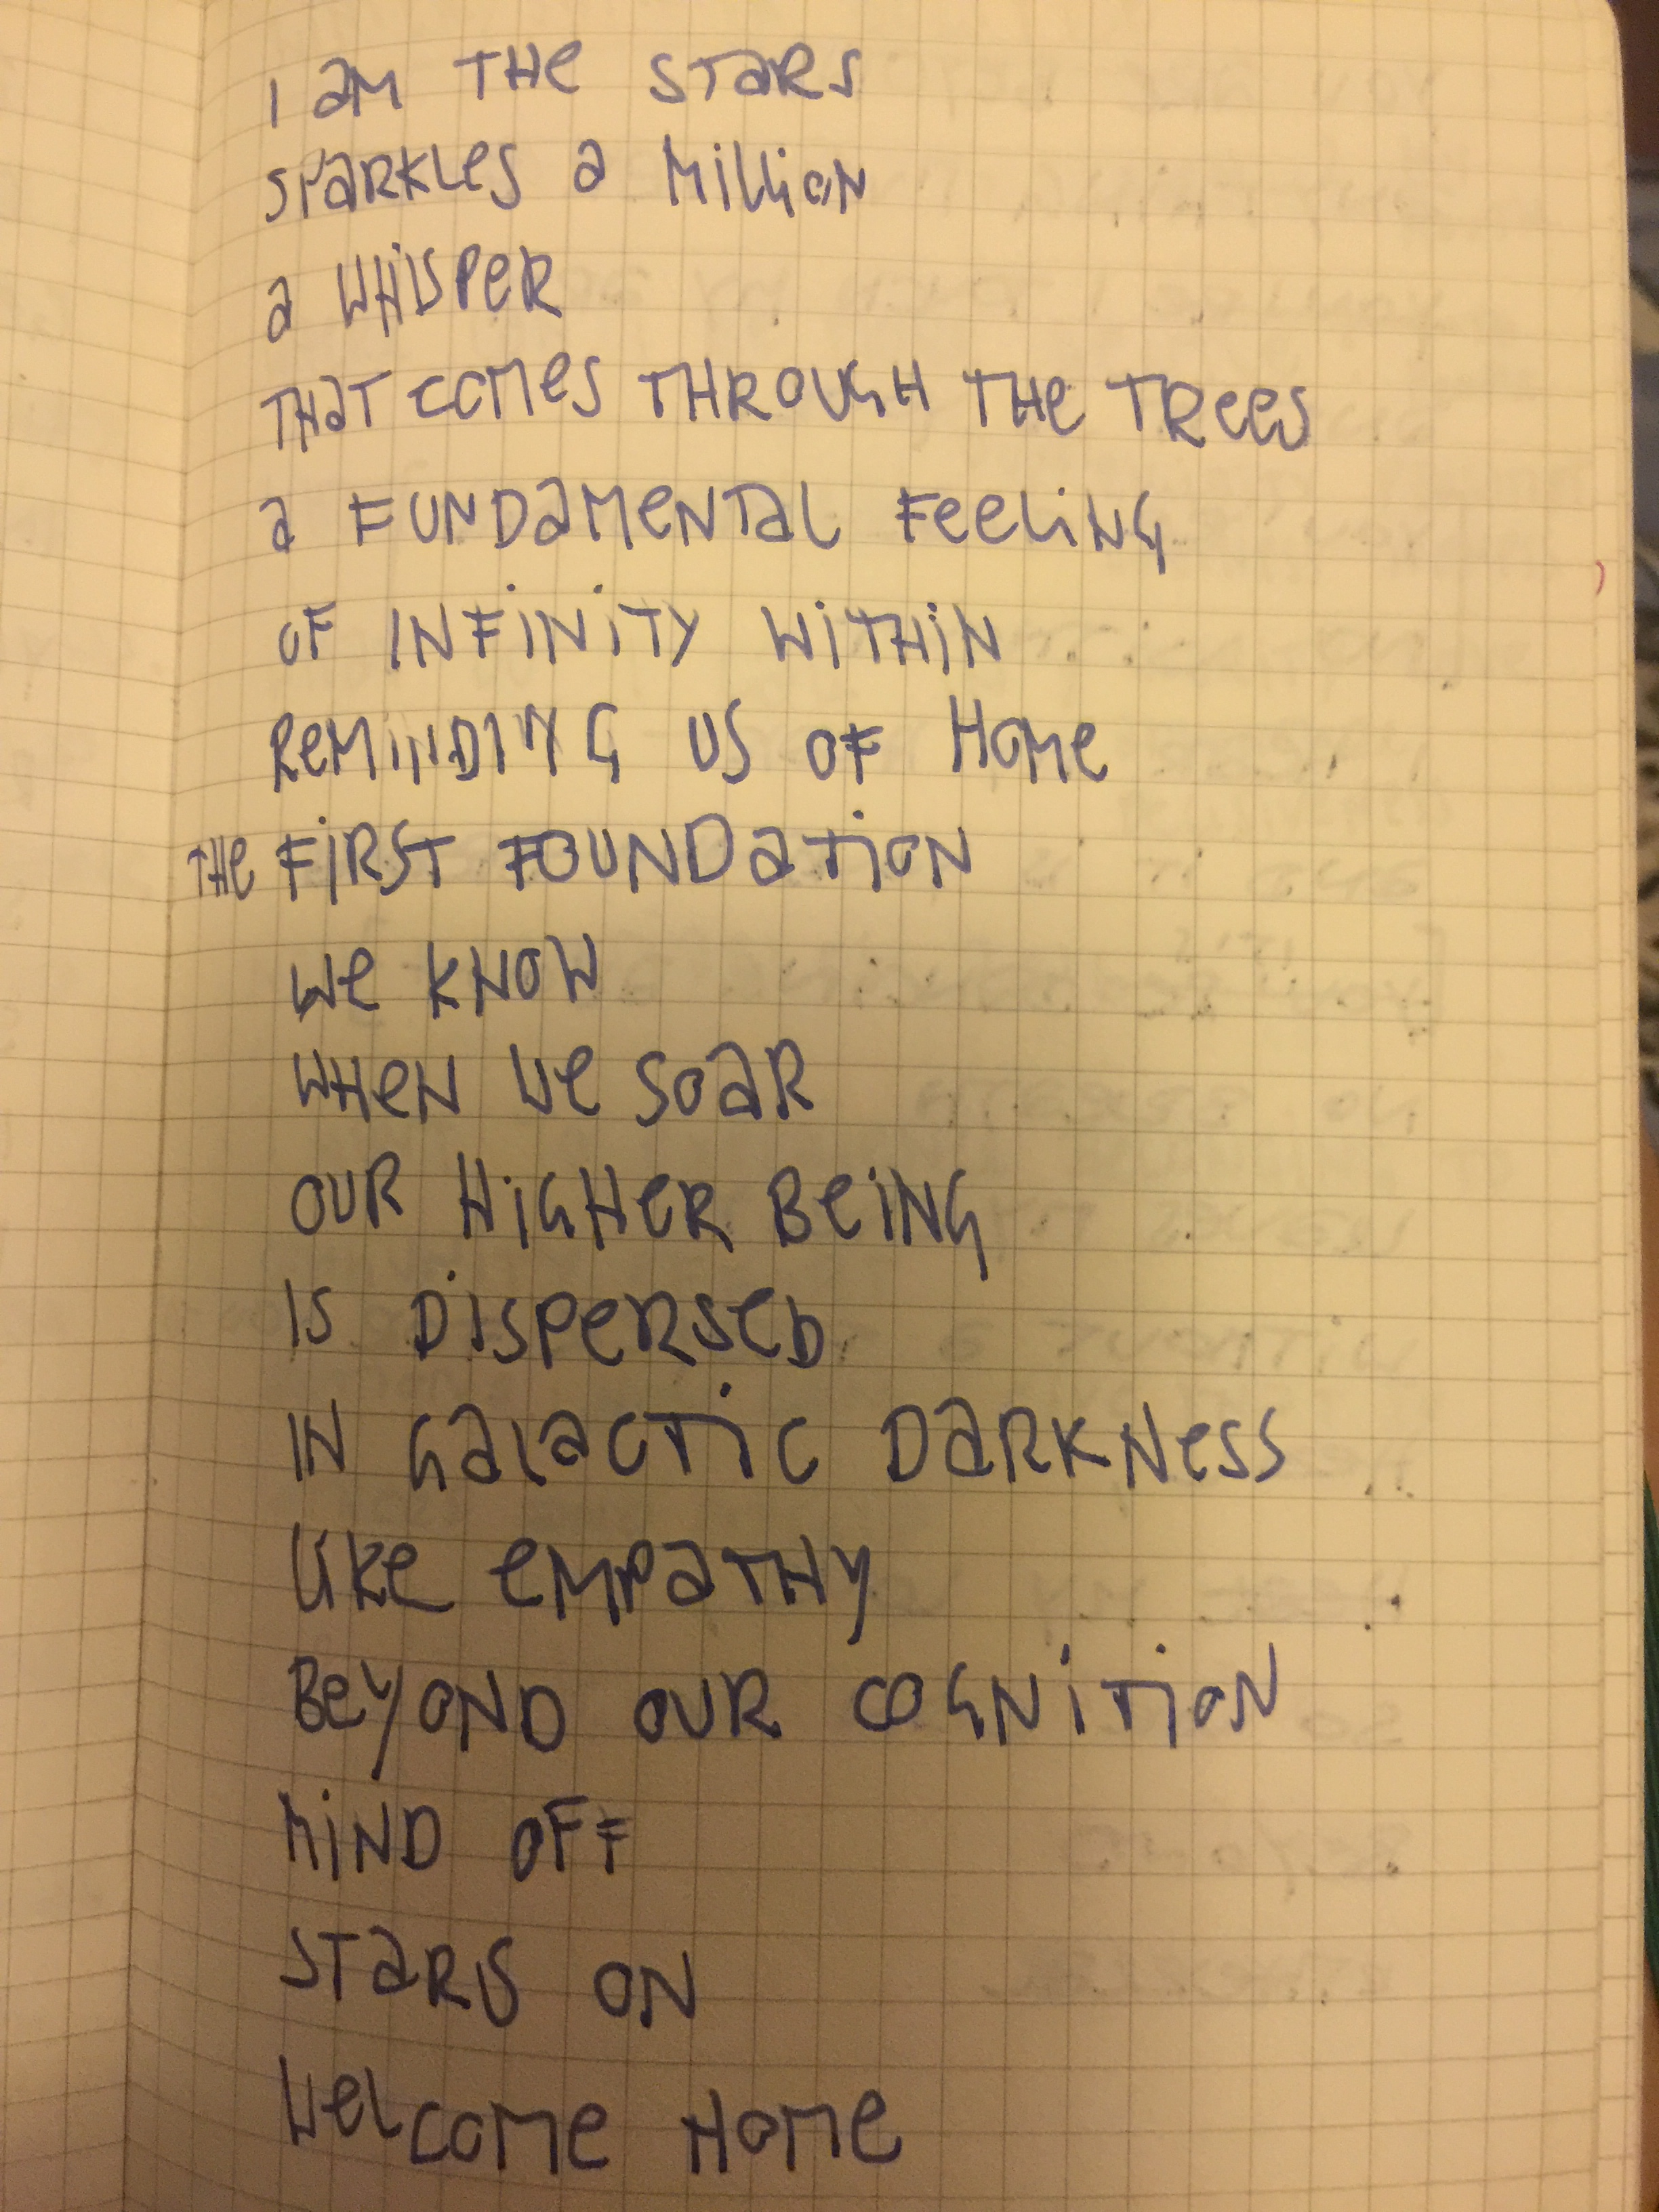 I am THe STaRS
SPaRKLeS a MiLLioN
a WHiSPeR
THaT COMeS THROUGH THe TRees
a FUNDaMeNTaL FeeLiNG
OF INFiNiTY WiTHiN
ReMINDING US OF HoMe
THe FiRST FOUNDaTioN
We KNOW
WHeN We SOaR
OUR HiGHeR BeiNG
IS DiSPeRSeD
IN GaLaCTiC DaRKNeSS
LiKe eMPaTHY
BeYOND OUR COGNiTioN
MiND OFF
STaRS ON
WeLCOMe HOMe